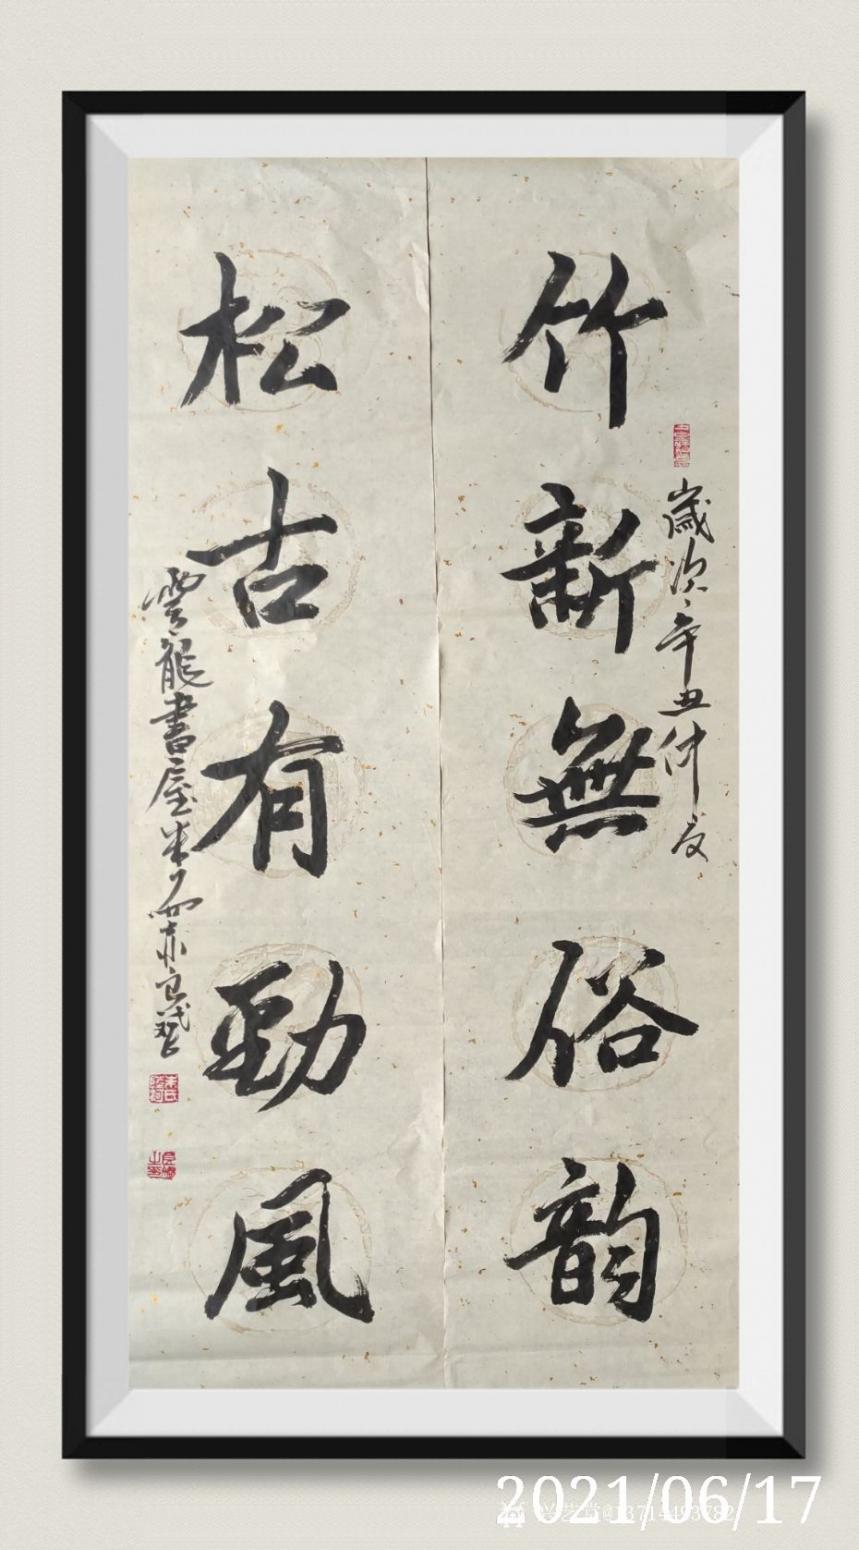 竹新無俗韵
歲次辛丑仲夏
松古有勁風
雲龍書屋朱
2021/06/17